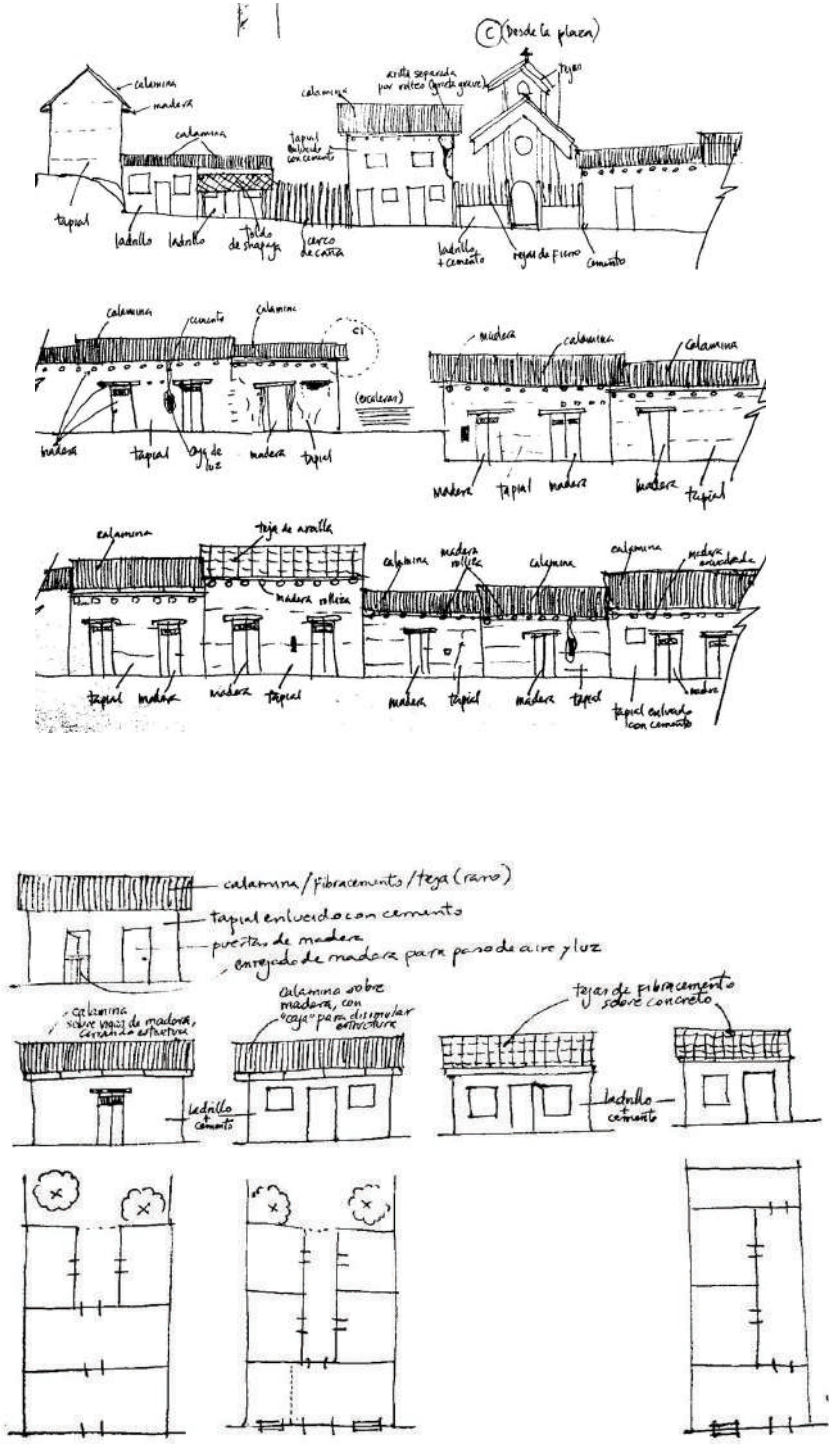 C (Desde la plaza)
calamina
madera
calamina
calamina
tapial
enlucido
con cemento
arista separada
por volteo (grieta grave)
tejas
tapial
ladrillo
ladrillo
toldo
de shapaja
cerco
de caña
ladrillo
+ cemento
rejas de fierro
cemento
calamina
cemento
calamina
C1
madera
tapial
caja de
luz
madera
tapial
(escaleras)
madera
calamina
calamina
madera
tapial
madera
madera
tapial
calamina
teja de arcilla
madera rolliza
calamina
madera
rolliza
calamina
calamina
madera
tapial
madera
madera
tapial
madera
tapial
madera
tapial
tapial enlucido
con cemento
madera
calamina / fibracemento / teja (raro)
tapial enlucido con cemento
puertas de madera
enrejado de madera para paso de aire y luz
calamina
sobre vigas de madera,
estructura
calamina sobre
madera, con
"caja" para disimular
estructura
tejas de fibracemento
sobre concreto
ladrillo
+
cemento
ladrillo
+
cemento